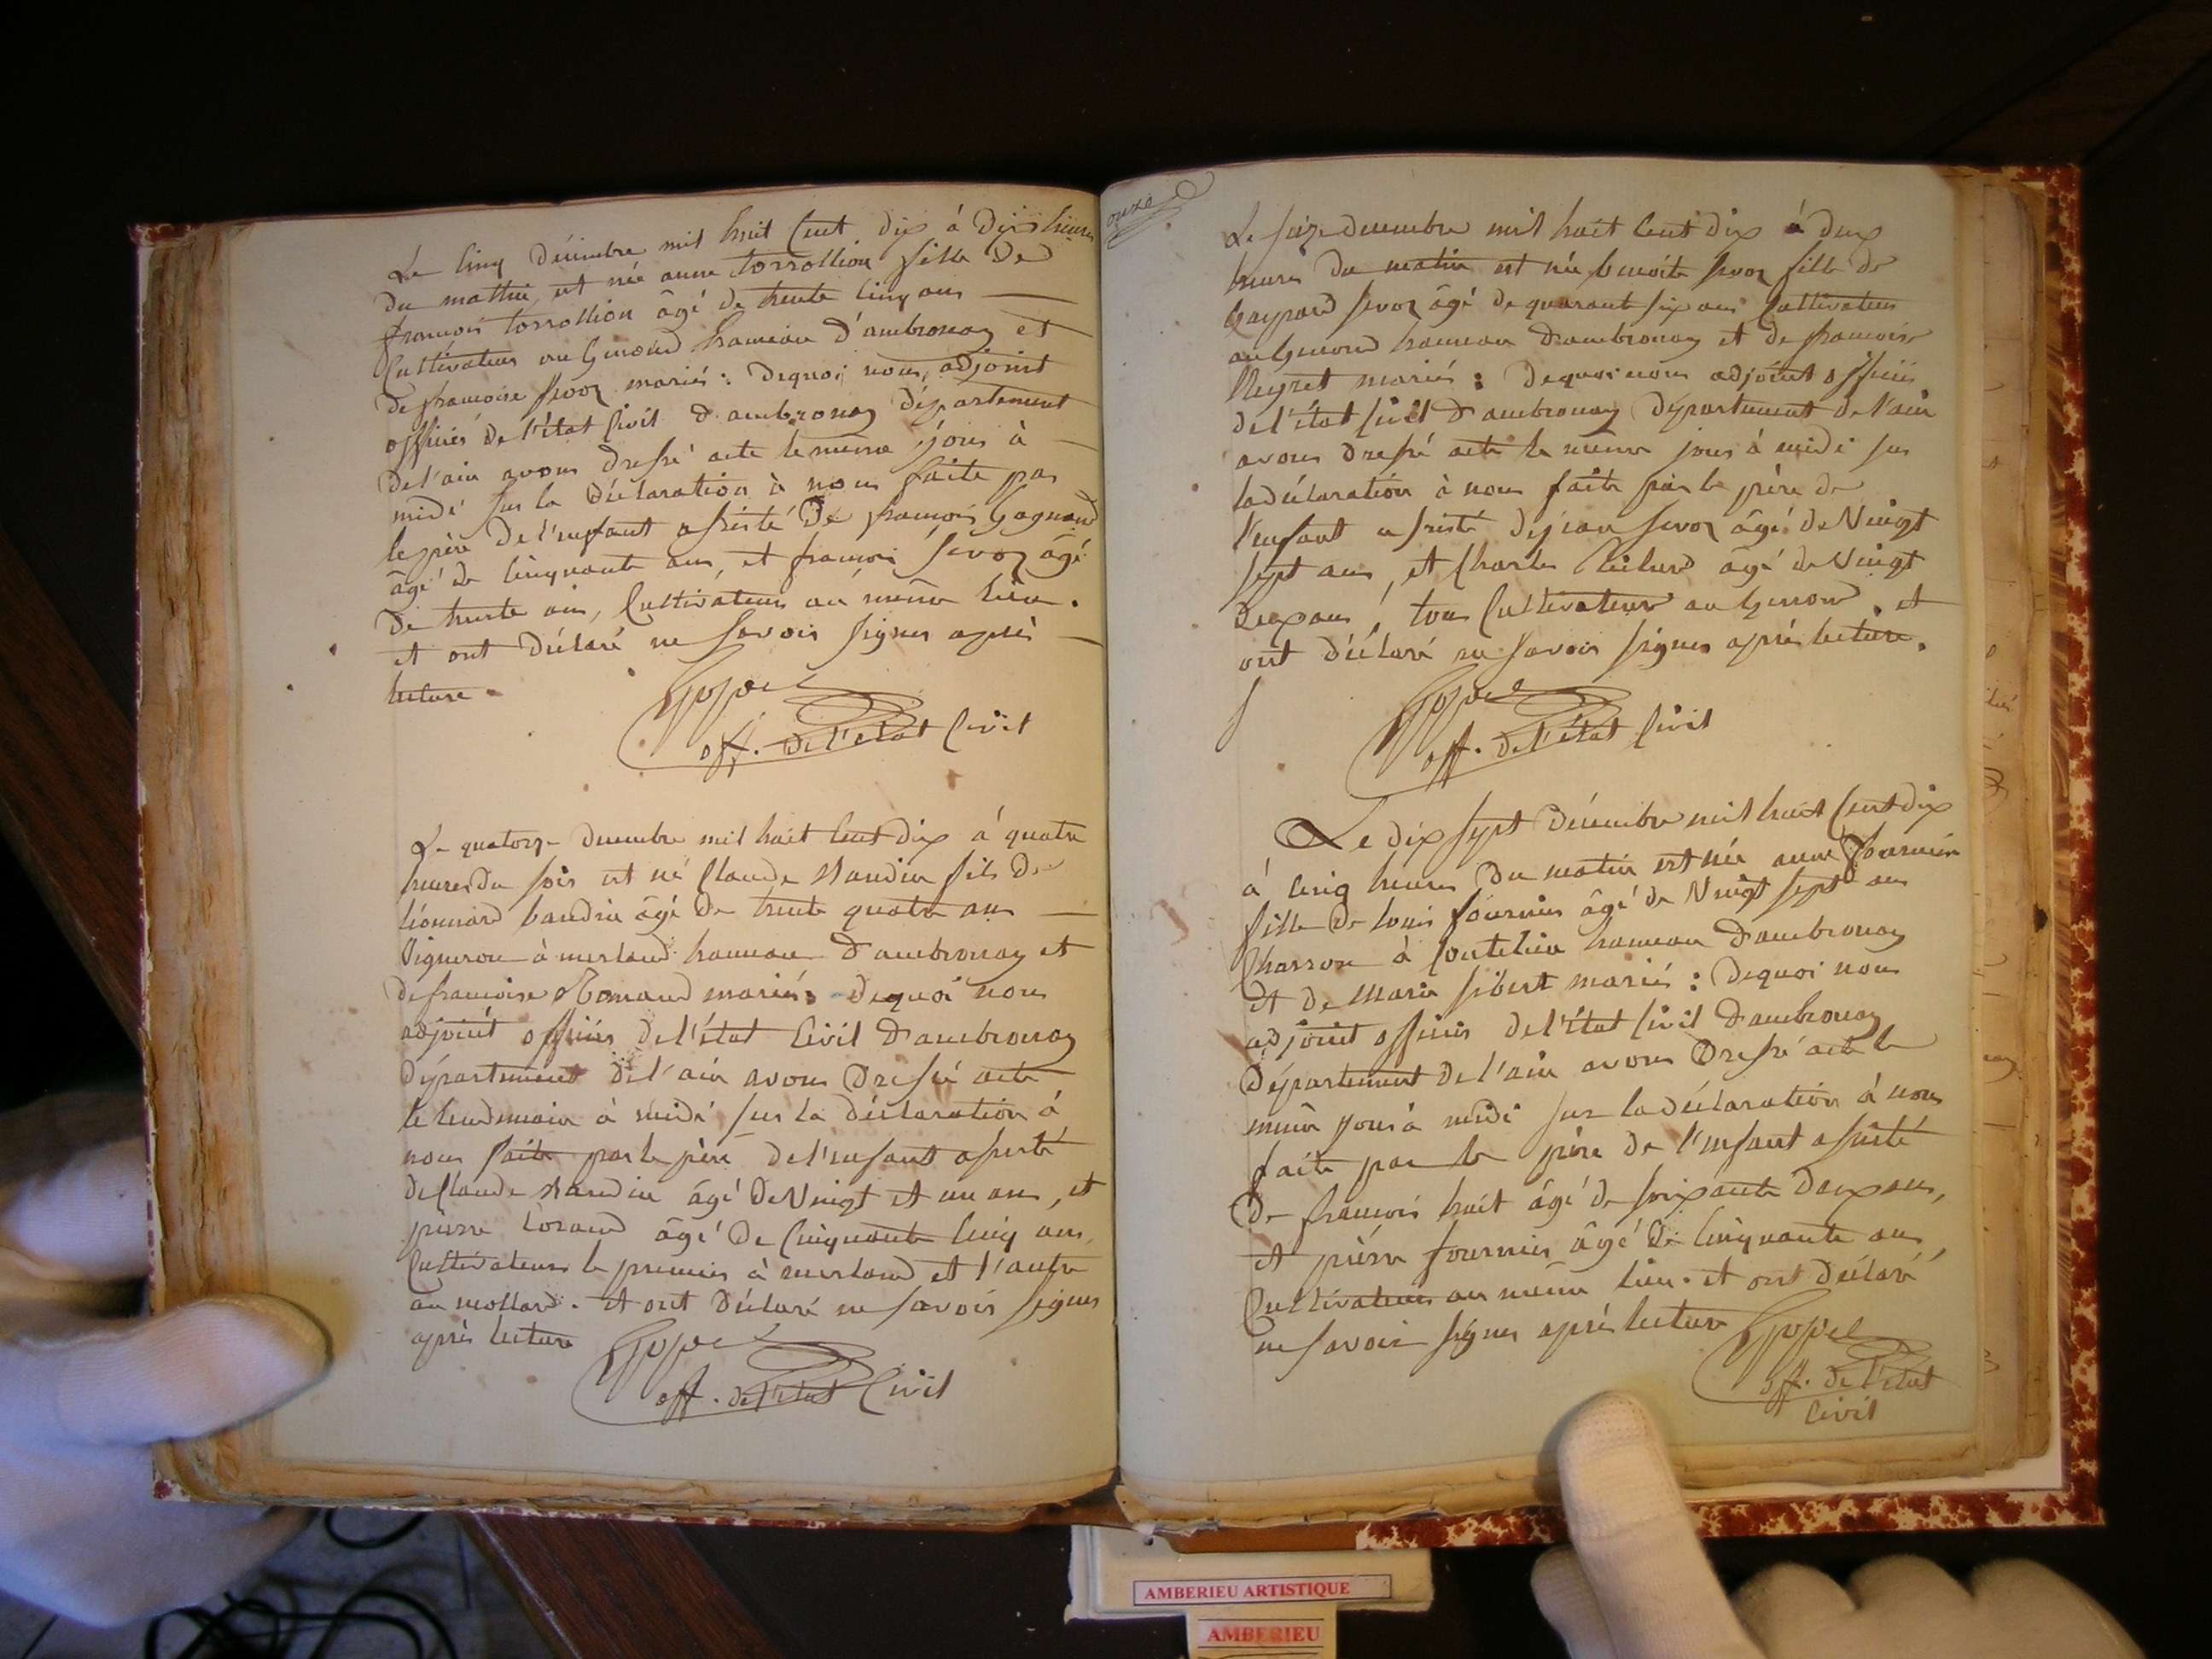 Le cinq décembre mil huit cent dix à dix heures
du matin, est née anne torrollion fille de
francois torrollion âgé de trente cinq ans
Cultivateur au genoud hameau d'ambronay et
de francoise sevoz mariés : dequoi nous, adjoint
officier de l'état civil d'ambronay département
de l'ain avons dressé acte le même jour à
midi sur la déclaration à nous faite par
le père de l'enfant assisté de francois gagneux
âgé de cinquante ans, et francois sevoz âgé
de trente ans, Cultivateurs au même lieu.
et ont déclaré ne savoir signer après
lecture.
off. de l'état civil
Le quatorze decembre mil huit cent dix à quatre
heures du soir est né Claude Baudin fils de
léonnard baudin âgé de trente quatre ans
Vigneron à merland hameau d'ambronay et
de francoise mariés : dequoi nous
adjoint officier de l'état civil d'ambronay
département de l'ain avons dressé acte
le lendemain à midi sur la déclaration à
nous faite par le père de l'enfant assisté
de Claude Baudin âgé de Vingt et un ans, et
pierre âgé de cinquante cinq ans,
Cultivateurs le premier à merland et l'autre
au mollard. et ont déclaré ne savoir signer
après lecture
off. de l'état Civil
onze
Le seize decembre mil huit cent dix à deux
heures du matin est née benoite sevoz fille de
gaspard sevoz âgé de quarante six ans Cultivateur
au genoud hameau d'ambronay et de francoise
Negret mariés : dequoi nous adjoint officier
de l'état civil d'ambronay département de l'ain
avons dressé acte le même jour à midi sur
la déclaration à nous faite par le père de
l'enfant assisté de jean sevoz âgé de Vingt
sept ans, et Charles âgé de Vingt
deux ans, tous Cultivateurs au genoud. et
ont déclaré ne savoir signer après lecture.
off. de l'état civil
Le dix sept décembre mil huit cent dix
à cinq heures du matin est née anne fournier
fille de louis fournier âgé de Vingt sept ans
Charron à hameau d'ambronay
et de Marie sibert mariés : dequoi nous
adjoint officier de l'état civil d'ambronay
département de l'ain avons dressé acte le
même jour à midi sur la déclaration à nous
faite par le père de l'enfant assisté
de francois huit âgé de soixante deux ans,
et pierre fournier âgé de cinquante ans,
Cultivateurs au même lieu. et ont déclaré
ne savoir signer après lecture
off. de l'état
civil
AMBERIEU ARTISTIQUE
AMBERIEU